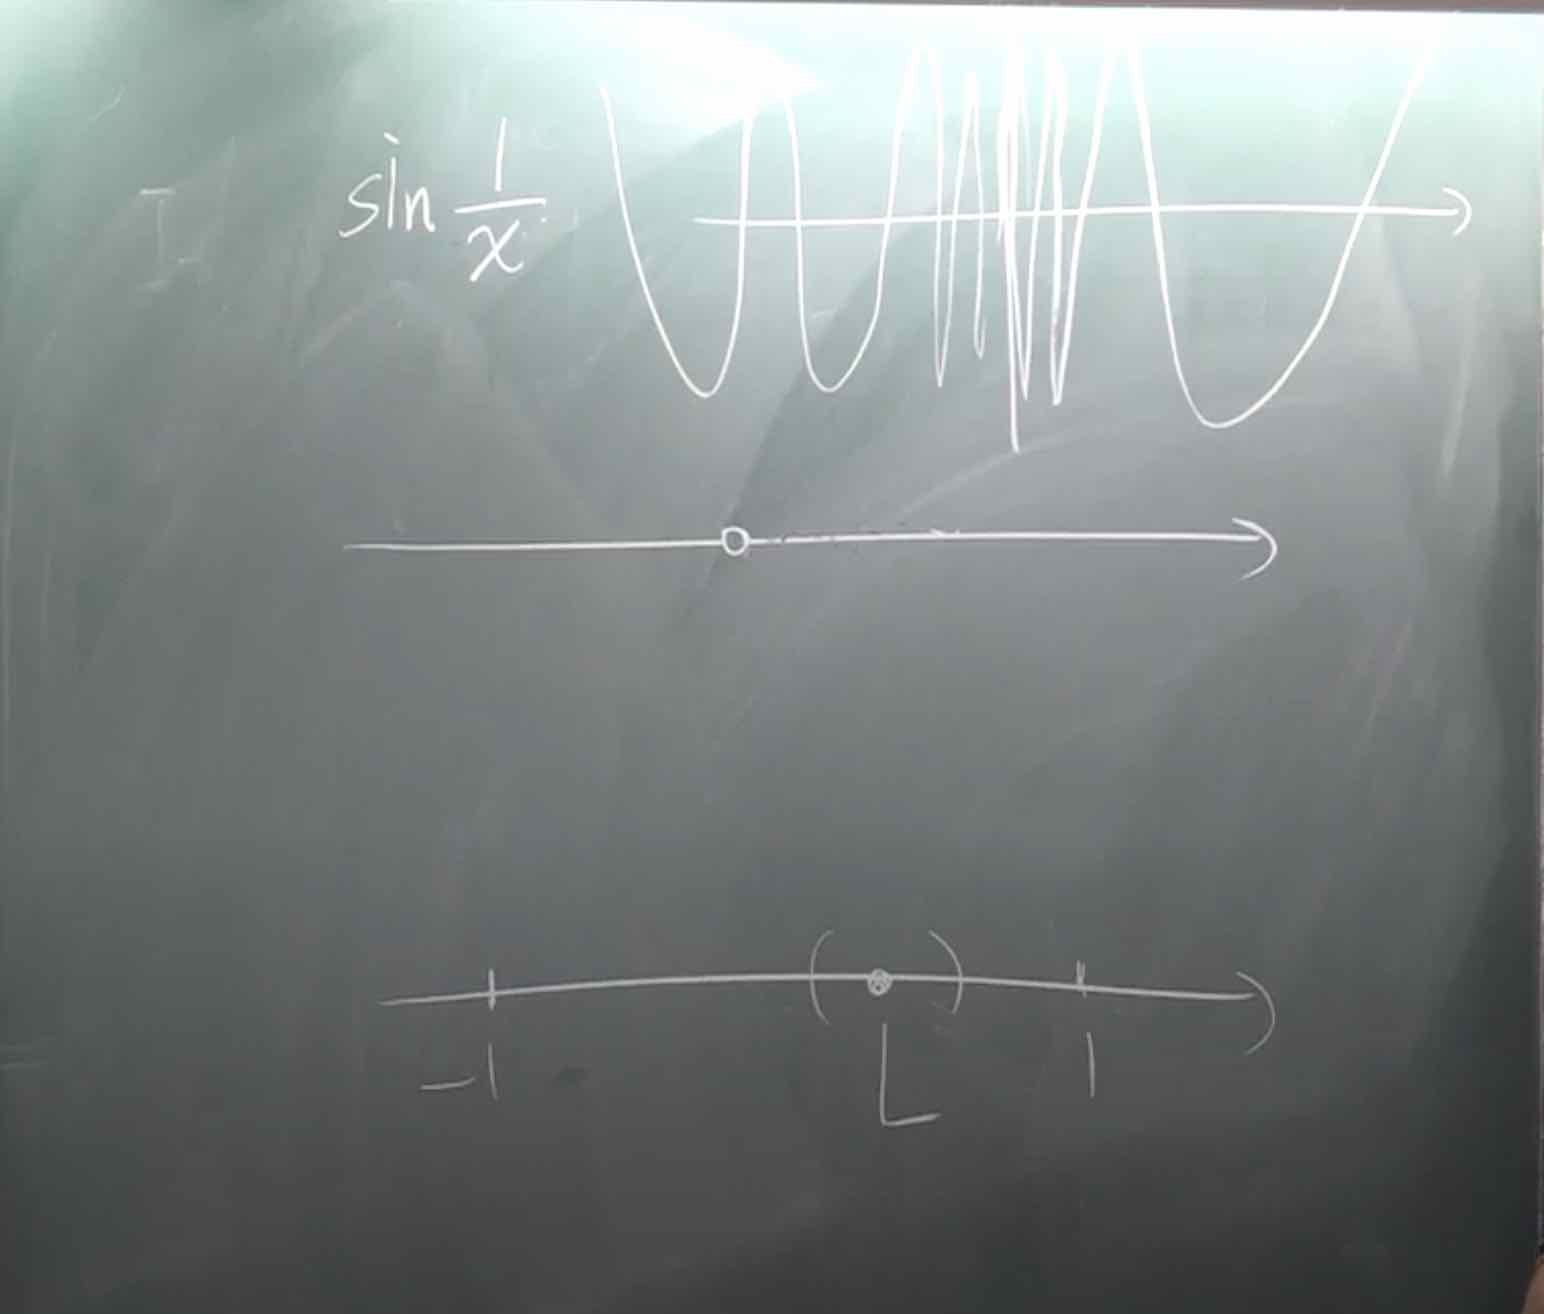 sin 1/x
-1 L 1